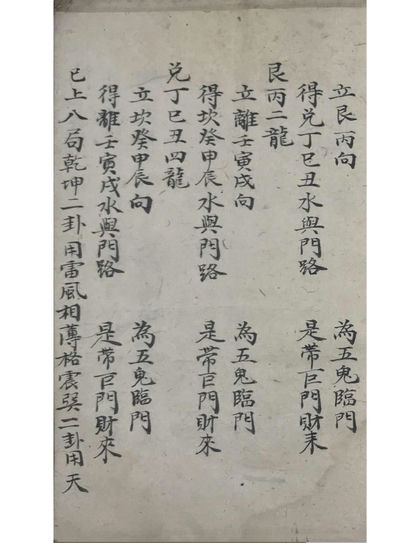 立艮丙向 為五鬼臨門
得兌丁巳丑水與門路 是帶巨門財来
艮丙二龍
立離壬寅戌向 為五鬼臨門
得坎癸申辰水與門路 是帶巨門財來
兌丁巳丑四龍
立坎癸申辰向 為五鬼臨門
得離壬寅戌水與門路 是帶巨門財來
已上八局乾坤二卦用雷風相薄格震巽二卦用天